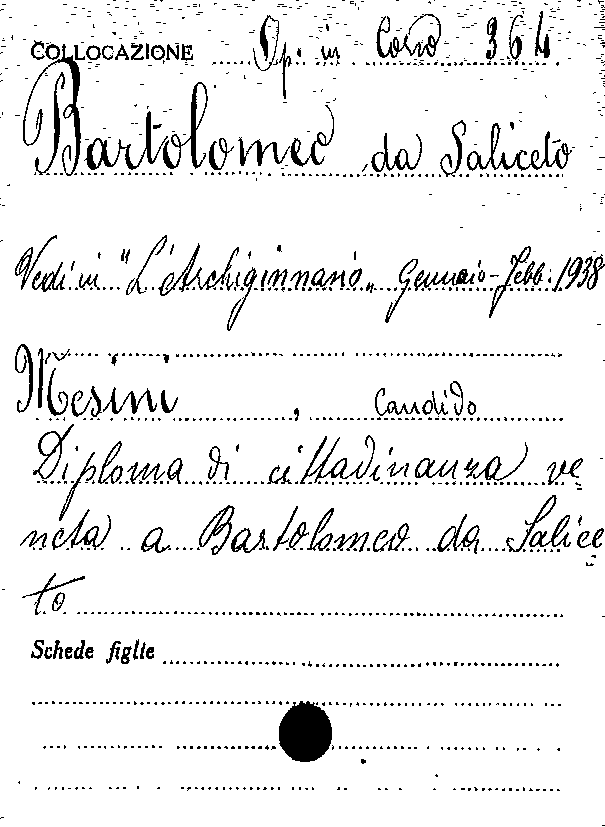 COLLOCAZIONE Op. in Corso 364
Bartolomeo da Saliceto
Vedi in "L'Archiginnasio" Gennaio-Febb. 1938
Mesini, Candido
Diploma di cittadinanza ve=
neta a Bartolomeo da Salice=
to
Schede figlie